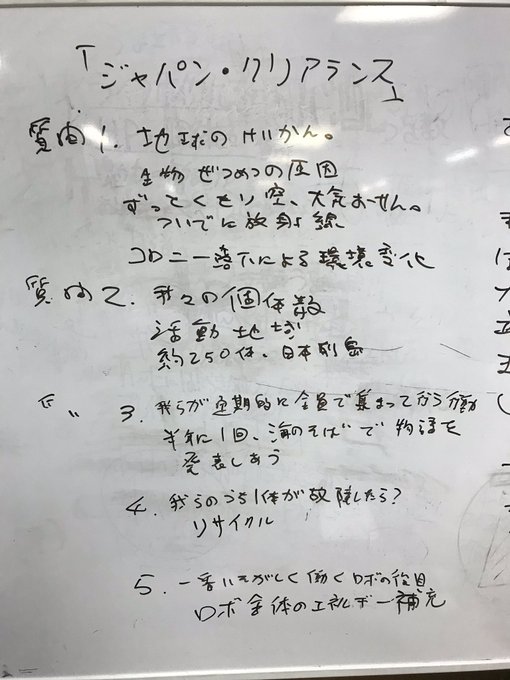 「ジャパン・クリアランス」
質問1. 地球のけいかん。
生物ぜつめつの原因
ずってくもり空、大気おせん。
ついでに放射線
コロニー落下による環境変化
質問2. 我々の個体数
活動地域
約250体、日本列島
〃 3. 我らが定期的に全員で集まって行う働
半年に1回、海のそばで物語を
発表しあう
4. 我らのうち1体が故障したら?
リサイクル
5. 一番いそがしく働くロボの役目
ロボ全体のエネルギー補充